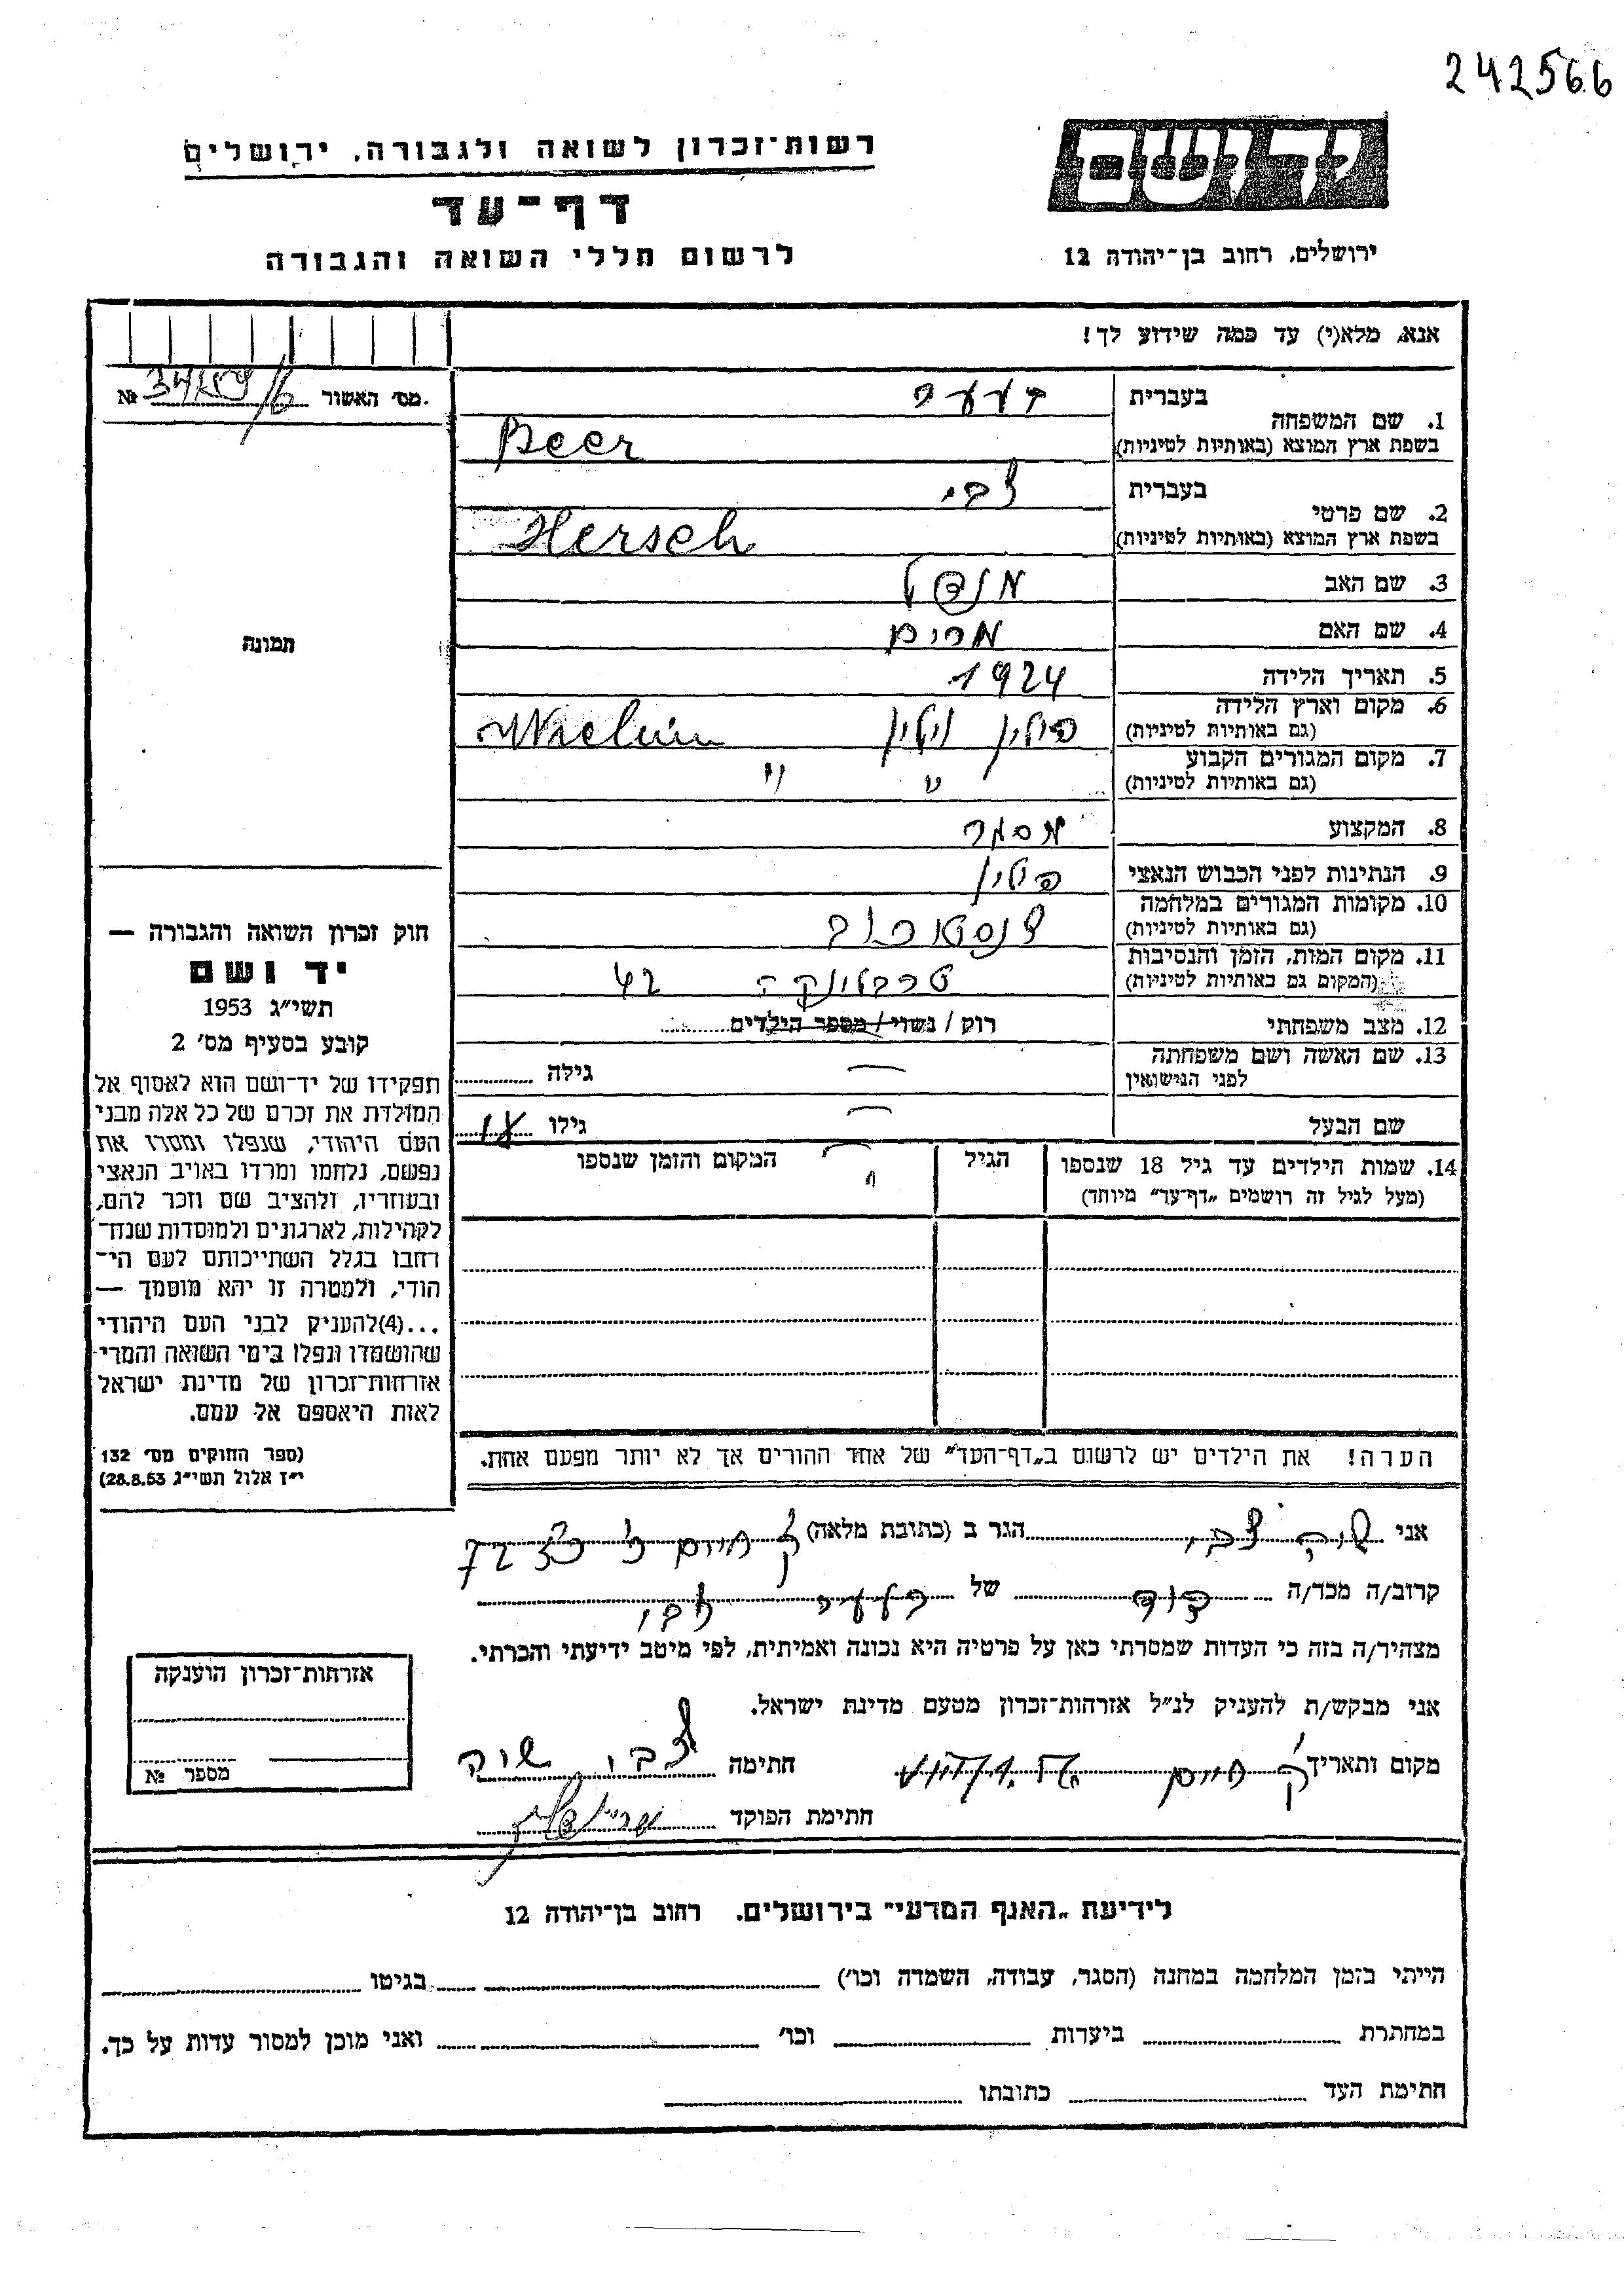 242566
יד ושם
רשות-זכרון לשואה ולגבורה, ירושלים
דף-עד
לרשום חללי השואה והגבורה
ירושלים, רחוב בן-יהודה 12
אנא, מלא(י) עד כמה שידוע לך!
מס' האשור №
1. שם המשפחה
בעברית בער
בשפת ארץ המוצא (באותיות לטיניות) Beer
2. שם פרטי
בעברית צבי
בשפת ארץ המוצא (באותיות לטיניות) Hersch
3. שם האב מנדל
4. שם האם מרים
5. תאריך הלידה 1924
6. מקום וארץ הלידה פולין וילון Wielun
(גם באותיות לטיניות)
7. מקום המגורים הקבוע " "
(גם באותיות לטיניות)
8. המקצוע מסגר
9. הנתינות לפני הכבוש הנאצי פולין
10. מקומות המגורים במלחמה צנסטכוב
(גם באותיות לטיניות)
11. מקום המות, הזמן והנסיבות טרבלינקה 42
(המקום גם באותיות לטיניות)
12. מצב משפחתי רוק / נשוי / מספר הילדים
13. שם האשה ושם משפחתה
לפני הנישואין
גילה
שם הבעל
גילו 18
14. שמות הילדים עד גיל 18 שנספו
(מעל לגיל זה רושמים „דף-עד" מיוחד)
הגיל
המקום והזמן שנספו
הערה! את הילדים יש לרשום ב„דף-העד" של אחד ההורים אך לא יותר מפעם אחת.
תמונה
חוק זכרון השואה והגבורה —
יד ושם
תשי"ג 1953
קובע בסעיף מס' 2
תפקידו של יד-ושם הוא לאסוף אל
המולדת את זכרם של כל אלה מבני
העם היהודי, שנפלו ומסרו את
נפשם, נלחמו ומרדו באויב הנאצי
ובעוזריו, ולהציב שם וזכר להם,
לקהילות, לארגונים ולמוסדות שנח-
רחבו בגלל השתייכותם לעם הי-
הודי, ולמטרה זו יהא מוסמך —
...(4)להעניק לבני העם היהודי
שהושמדו ונפלו בימי השואה והמרי
אזרחות-זכרון של מדינת ישראל
לאות היאספם אל עמם.
(ספר החוקים מס' 132
י"ז אלול תשי"ג 28.8.53)
אני צבי הגר ב (כתובת מלאה) ק חיים
קרוב/ה מכר/ה דוד של בער צבי
מצהיר/ה בזה כי העדות שמסרתי כאן על פרטיה היא נכונה ואמיתית, לפי מיטב ידיעתי והכרתי.
אני מבקש/ת להעניק לנ"ל אזרחות-זכרון מטעם מדינת ישראל.
מקום ותאריך ק' חיים חתימה צבי
חתימת הפוקד
אזרחות-זכרון הוענקה
מספר №
לידיעת „האגף המדעי" בירושלים. רחוב בן-יהודה 12
הייתי בזמן המלחמה במחנה (הסגר, עבודה, השמדה וכו') בגיטו
במחתרת ביערות וכו' ואני מוכן למסור עדות על כך.
חתימת העד כתובתו